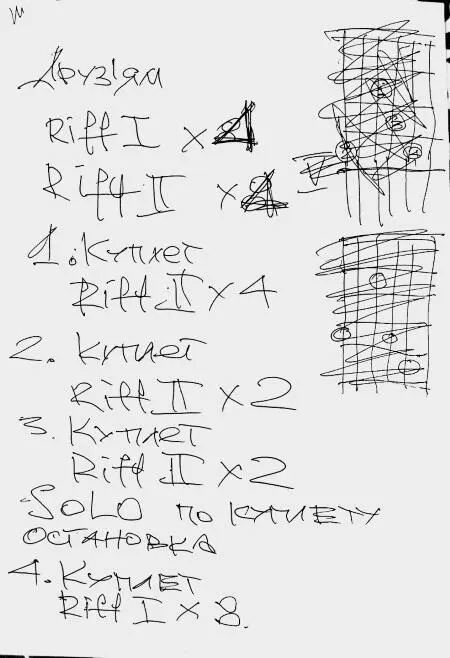 Друзям
Riff I x 4
Riff II x 2
1. Куплет
Riff II x 4
2. Куплет
Riff II x 2
3. Куплет
Riff II x 2
SOLO по куплету
остановка
4. Куплет
Riff I x 8.